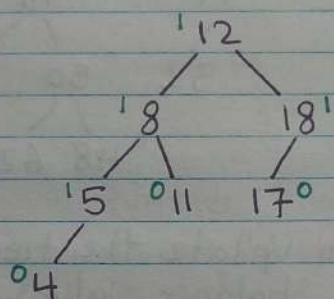 1 12
1 8 18 1
1 5 0 11 17 0
0 4